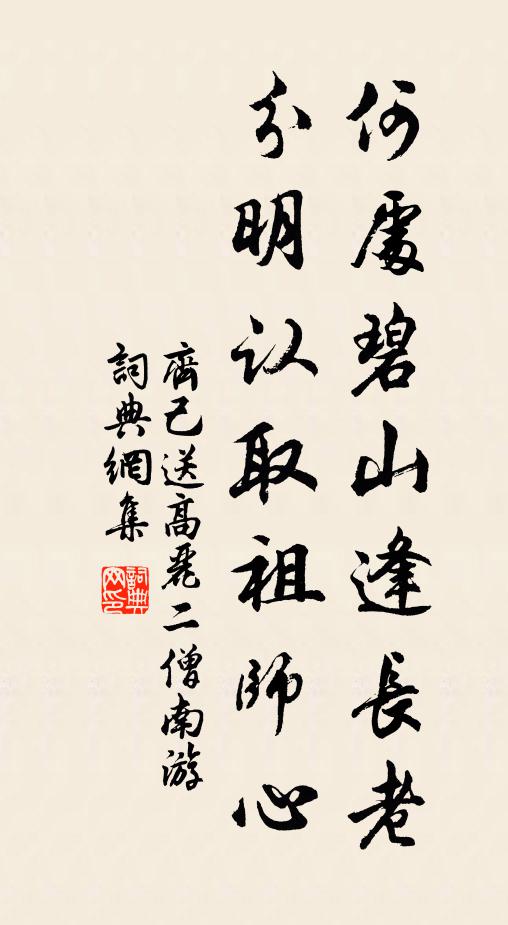 何處碧山逢長老
分明认取祖師心
齊己送高麗二僧南游
詞典網集
詞典
网印